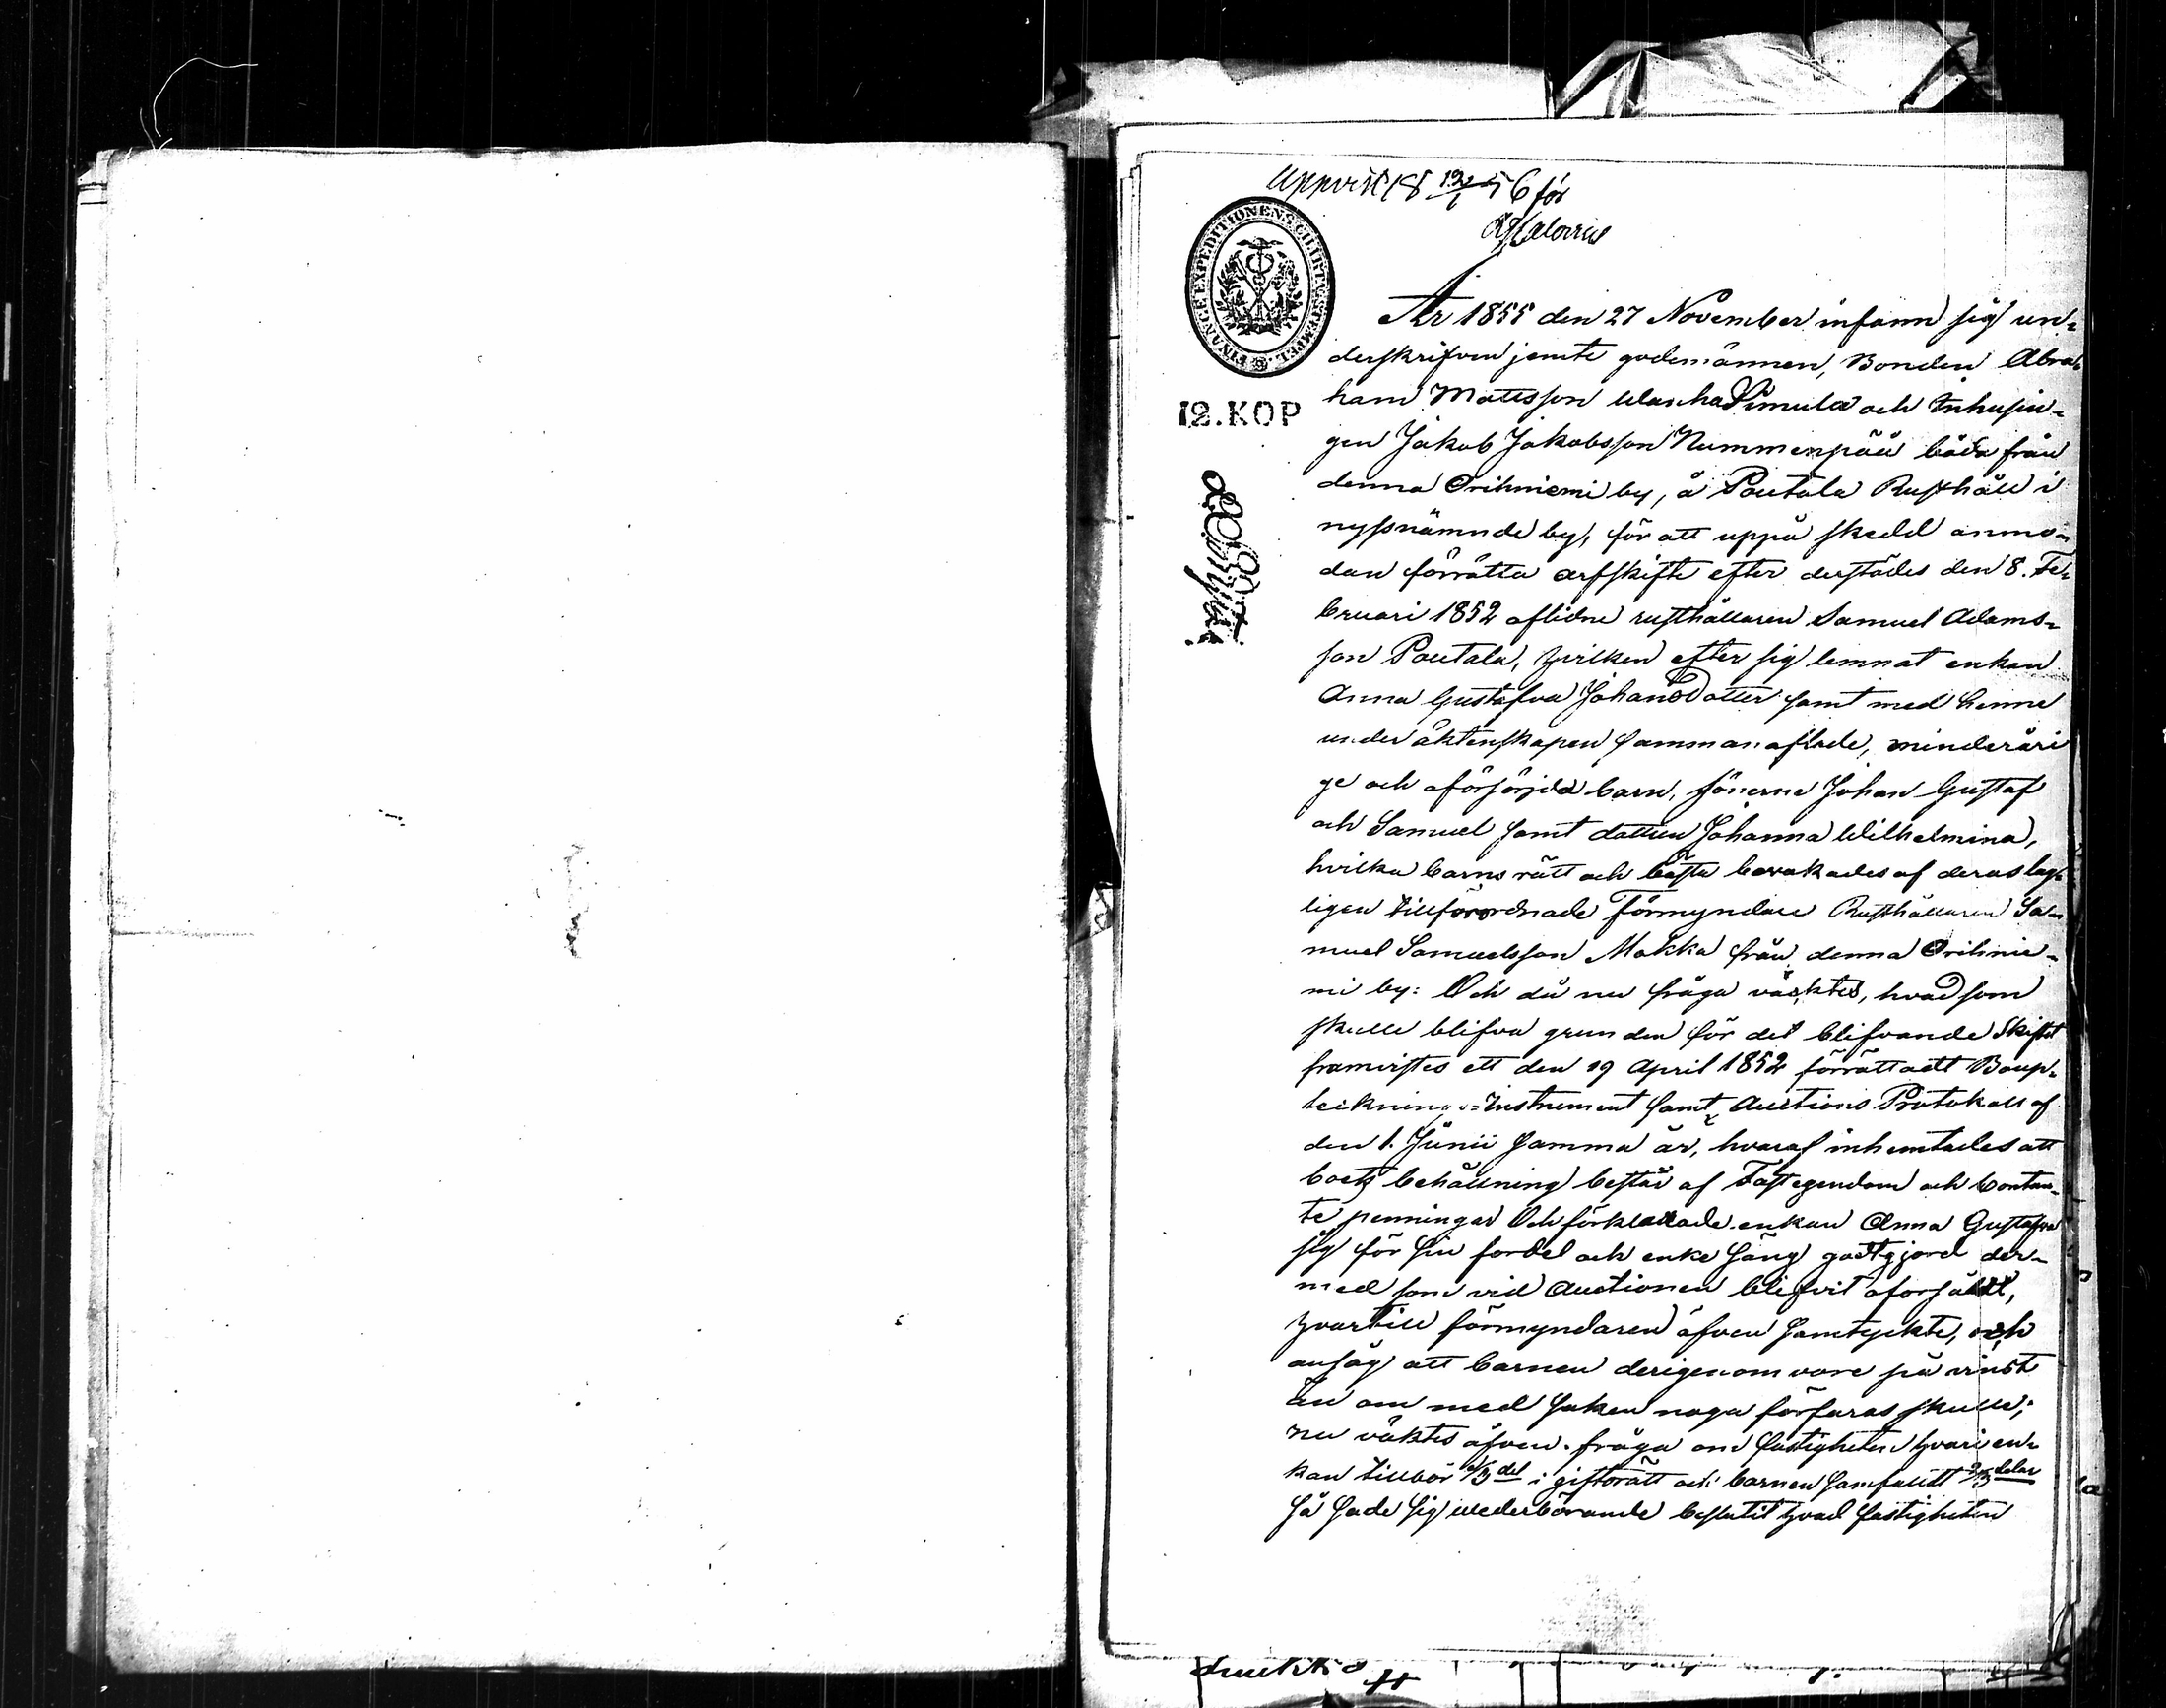 Uppvist 18 12/1 56 för
FINANCE EXPEDITIONENS CHARTÆ STEMPEL
12. KOP
År 1855 den 27 November infann sig un-
derskrifven jemte godemännen, Bonden Abra-
ham Mattsson Simula och Inhysin-
gen Jakob Jakobsson Nummenpää båda från
denna Orihniemi by, å Poutala Rusthåll i
nyssnämnde by, för att uppå skedd anmo-
dan förrätta arfskifte efter derstädes den 8. Fe-
bruari 1852 aflidne rusthållaren Samuel Adams-
son Poutala, hvilken efter sig lemnat enkan
Anna Gustafva Johansdotter samt med henne
under äktenskapen sammanaflade, minderåri
ge och oförsörjda barn, sönerne Johan Gustaf
och Samuel samt dottren Johanna Wilhelmina,
hvilka barns rätt och bästa bevakades af deras lag-
ligen tillförordnade Förmyndare Rusthållaren Sa-
muel Samuelsson Makka från denna Orihnie-
mi by: Och då nu fråga väcktes, hvad som
skulle blifva grunden för det blifvande Skiftet
framvistes ett den 19 April 1852 förrättadt Boup-
teknings-Instrument samt Auctions Protokoll af
den 1. Junii samma år, hvaraf inhemtades att
boets behållning består af Fastegendom och contan-
te penningar Och förklarade enkan Anna Gustafva
sig för sin fördel och enke säng godtgjord der-
med som vid Auctionen blifvit oförsåldt,
hvartill förmyndaren äfven samtyckte, och
ansåg att barnen derigenom vore på vinst
än om med saken noga förfaras skulle;
nu väktes äfven fråga om fastigheten hvari en-
kan tillhör 1/3 del i giftorätt och barnen samfäldt 2/3 delar
Så hade sig wederbörande beslutit hvad fastigheten